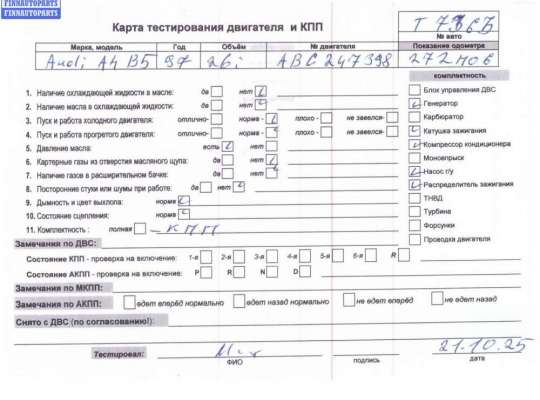 FINNAUTOPARTS
FINNAUTOPARTS
Карта тестирования двигателя и КПП
№ авто
Марка, модель Год Объём № двигателя Показание одометра
Audi A4 B5 97 2.6i ABC 247398
комплектность
1. Наличие охлаждающей жидкости в масле: да нет
Блок управления ДВС
2. Наличие масла в охлаждающей жидкости: да нет
Генератор
3. Пуск и работа холодного двигателя: отлично- норма - плохо - не завелся-
Карбюратор
4. Пуск и работа прогретого двигателя: отлично- норма - плохо - не завелся-
Катушка зажигания
5. Давление масла: есть нет
Компрессор кондиционера
6. Картерные газы из отверстия масляного щупа: да нет
Моновпрыск
7. Наличие газов в расширительном бачке: да нет
Насос г/у
8. Посторонние стуки или шумы при работе: да нет
Распределитель зажигания
9. Дымность и цвет выхлопа: норма
ТНВД
10. Состояние сцепления: норма
Турбина
11. Комплектность : полная - КПП
Форсунки
Замечания по ДВС:
Проводка двигателя
Состояние КПП - проверка на включение: 1-я 2-я 3-я 4-я 5-я 6-я R
Состояние АКПП - проверка на включение: P R N D
Замечания по МКПП:
Замечания по АКПП: едет вперёд нормально едет назад нормально не едет вперед не едет назад
Снято с ДВС (по согласованию!):
21.10.25
Тестировал: ФИО подпись дата